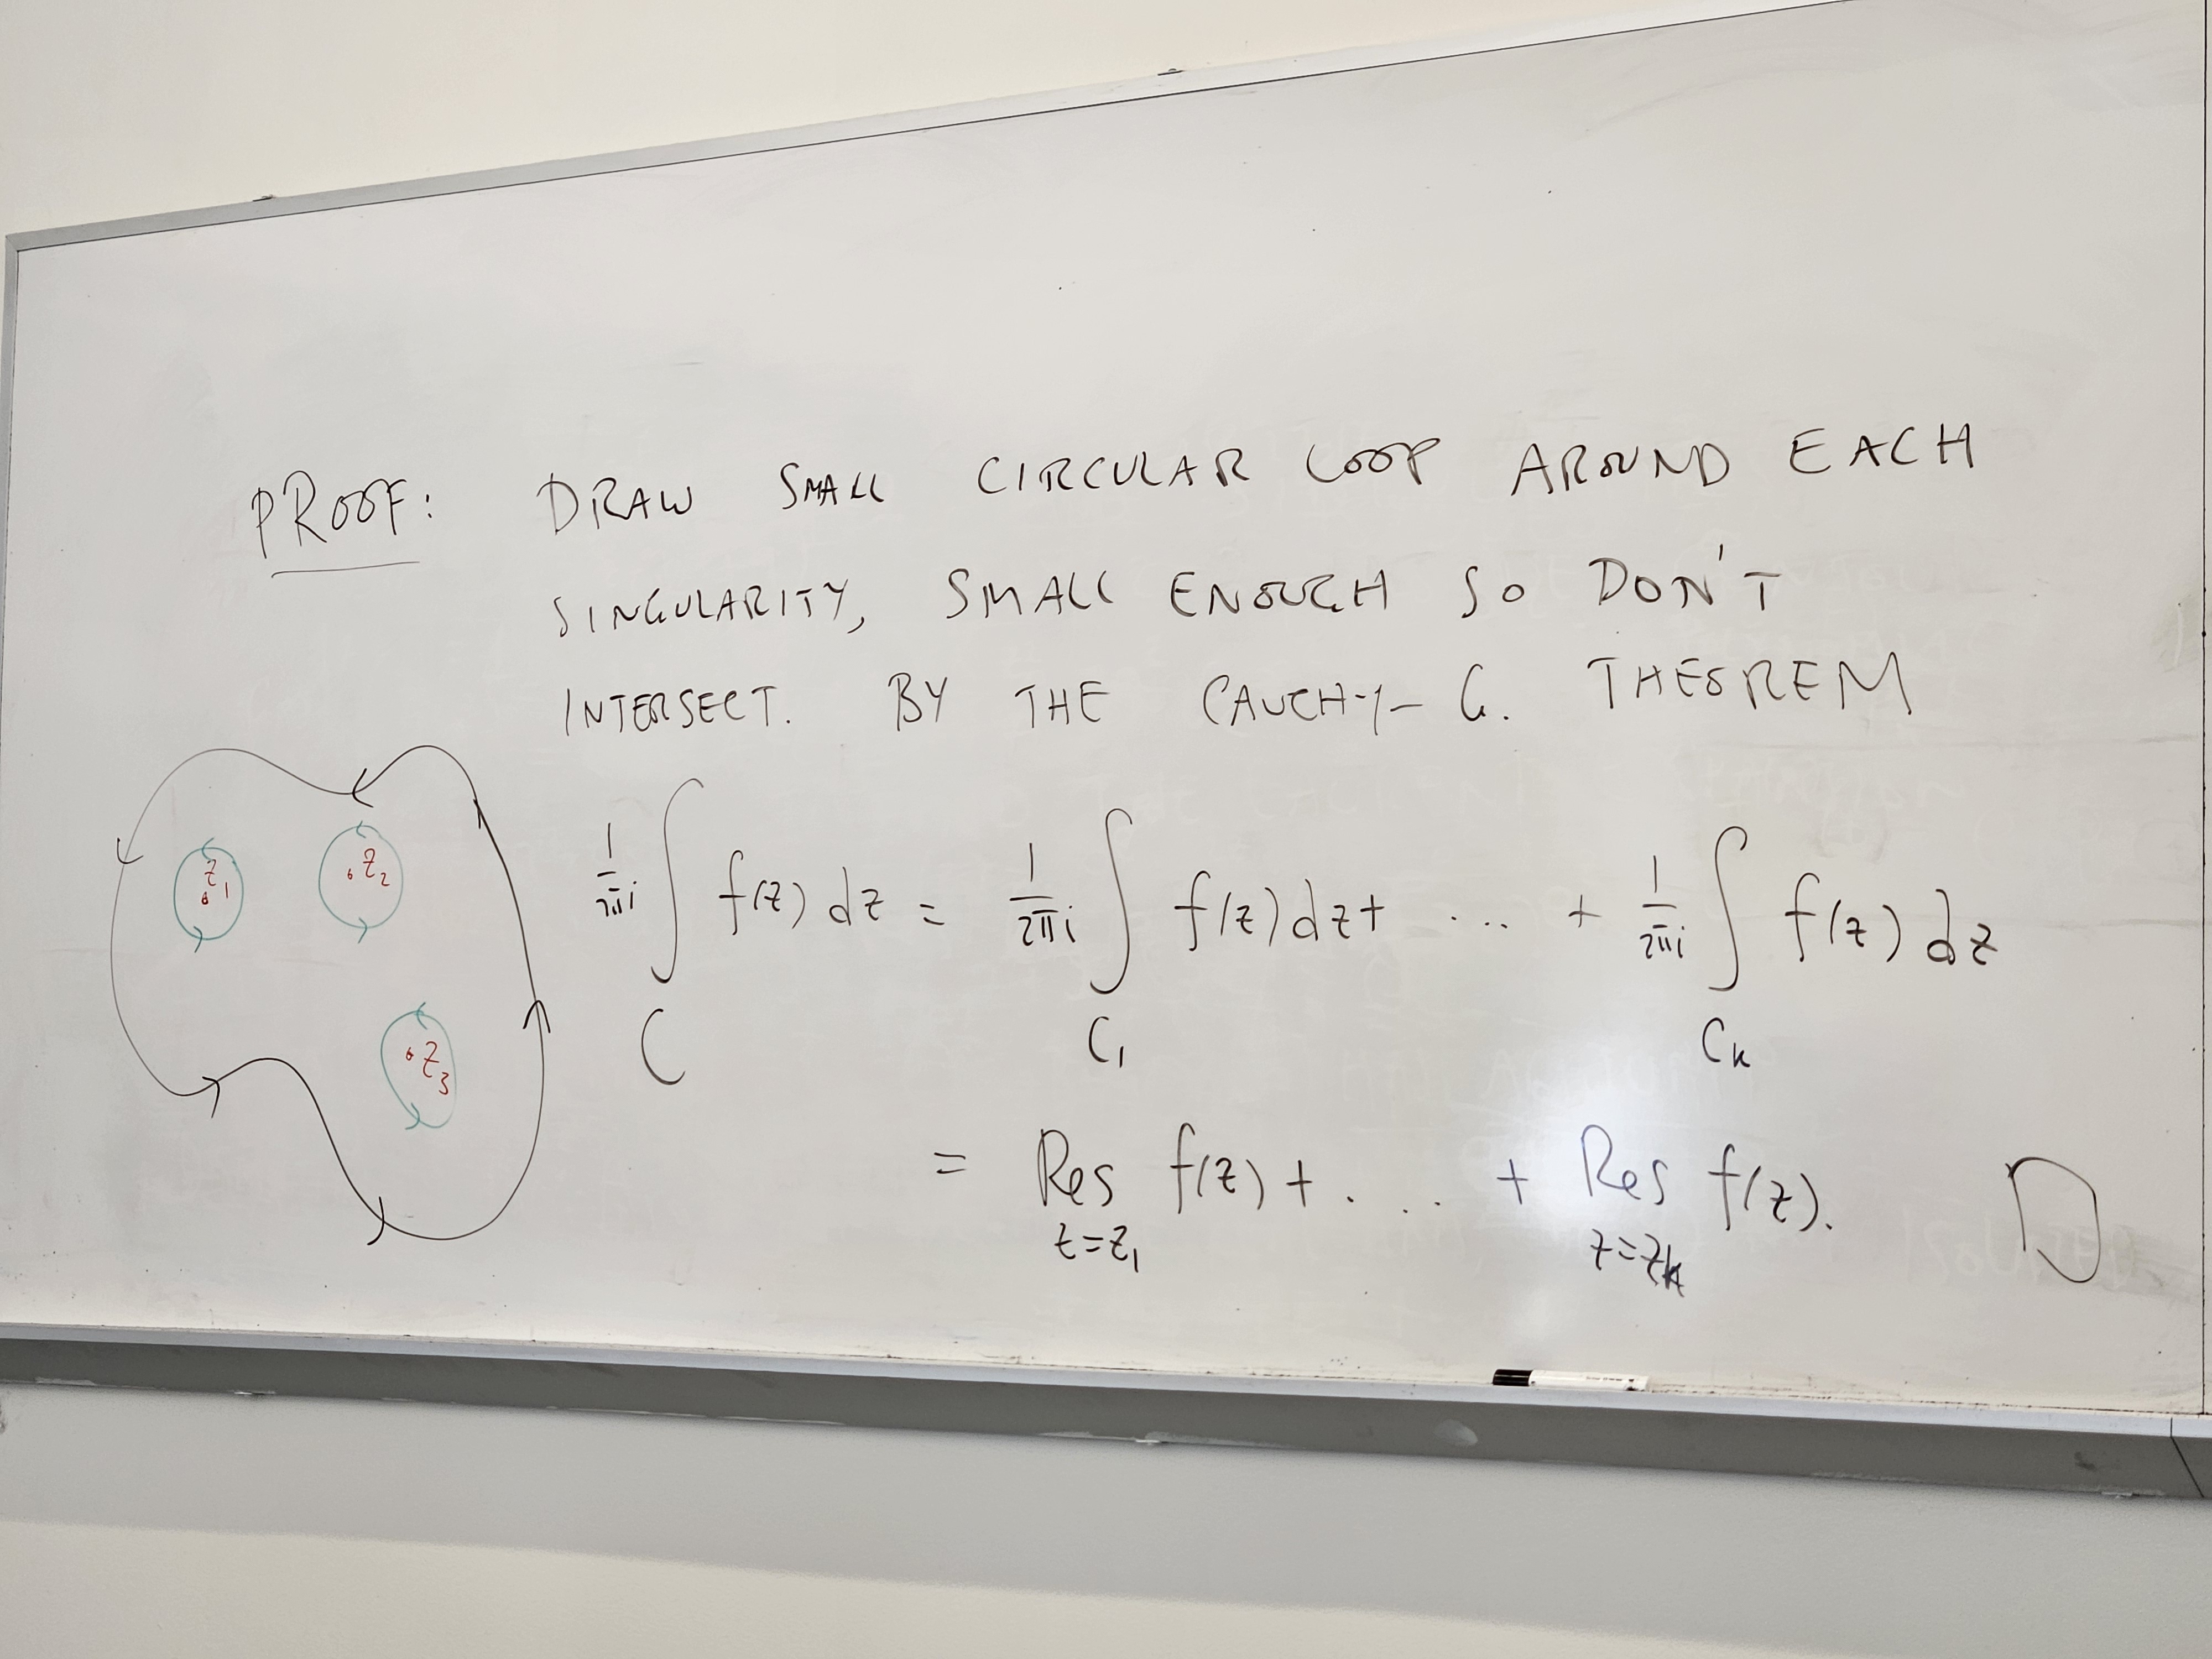 PROOF: DRAW SMALL CIRCULAR LOOP AROUND EACH
SINGULARITY, SMALL ENOUGH SO DON'T
INTERSECT. BY THE CAUCHY-G. THEOREM
z₁ z₂ z₃
1/2πi ∫_C f(z) dz = 1/2πi ∫_C₁ f(z) dz + ... + 1/2πi ∫_Cₖ f(z) dz
= Res_{z=z₁} f(z) + ... + Res_{z=zₖ} f(z). □